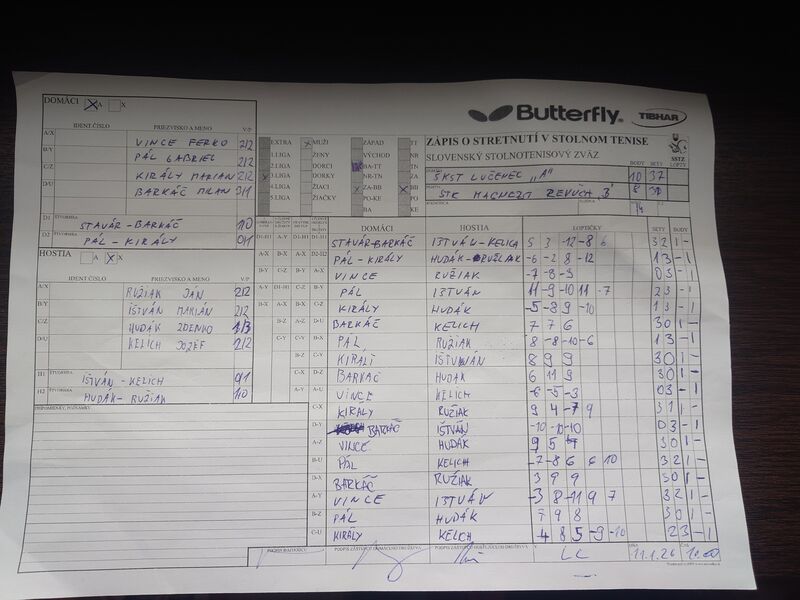 DOMÁCI X A X
Butterfly TIBHAR
IDENT.ČÍSLO PRIEZVISKO A MENO V/P
A/X VINCE FERKO 2/2
B/Y PÁL GABRIEL 2/2
C/Z KIRÁLY MARIAN 2/2
D/U BARKÁČ MILAN 3/1
D1 ŠTVORHRA STAVÁR-BARKÁČ 1/0
D2 ŠTVORHRA PÁL-KIRÁLY 0/1
EXTRA X MUŽI ZÁPAD TT
1.LIGA ŽENY VÝCHOD NR
2.LIGA DORCI BA-TT
X 3.LIGA DORKY NR-TN
4.LIGA ŽIACI X ZA-BB X BB
5.LIGA ŽIAČKY KE-PO
BA KE
ZÁPIS O STRETNUTÍ V STOLNOM TENISE
SLOVENSKÝ STOLNOTENISOVÝ ZVÄZ
SSTZ
BODY SETY LOPTY
ŠKST LUČENEC "A" 10 37
STK MAGNEZIT REVÚCA "B" 8 30
HOSTIA A X X
IDENT ČÍSLO PRIEZVISKO A MENO V/P
A/X RUŽIAK JÁN 2/2
B/Y IŠTVÁN MARIÁN 2/2
C/Z HUDÁK ZDENKO 1/3
D/U KELICH JOZEF 2/2
H1 ŠTVORHRA IŠTVÁN-KELICH 0/1
H2 ŠTVORHRA HUDÁK-RUŽIAK 1/0
PRIPOMIENKY, POZNÁMKY
DOMÁCI HOSTIA LOPTIČKY SETY BODY
STAVÁR-BARKÁČ IŠTVÁN-KELICH 5 3 -12 -8 6 3 2 1 -
PÁL-KIRÁLY HUDÁK-RUŽIAK -6 -2 8 -12 1 3 - 1
VINCE RUŽIAK -7 -8 -9 0 3 - 1
PÁL IŠTVÁN 11 -9 -10 11 -7 2 3 - 1
KIRÁLY HUDÁK -5 -8 9 -10 1 3 - 1
BARKÁČ KELICH 7 7 6 3 0 1 -
PÁL RUŽIAK 8 -8 -10 -6 1 3 - 1
KIRÁLI IŠTVÁN 8 9 9 3 0 1 -
BARKÁČ HUDÁK 6 11 9 3 0 1 -
VINCE KELICH -6 -5 -3 0 3 - 1
C-X KIRÁLY RUŽIAK 9 4 -7 9 3 1 1 -
D-Y BARKÁČ IŠTVÁN -10 -10 -10 0 3 - 1
A-Z VINCE HUDÁK 9 5 3 0 1 -
B-U PÁL KELICH -7 -8 6 6 10 3 2 1 -
D-X BARKÁČ RUŽIAK 3 9 9 3 0 1 -
A-Y VINCE IŠTVÁN -3 8 -11 9 7 3 2 1 -
B-Z PÁL HUDÁK 7 9 8 3 0 1 -
C-U KIRÁLY KELICH -4 8 5 -9 -10 2 3 - 1
PODPIS ROZHODCU PODPIS ZÁSTUPCU DOMÁCEHO DRUŽSTVA PODPIS ZÁSTUPCU HOSŤUJÚCEHO DRUŽSTVA V LC DŇA 11.1.26 ČAS 10.00